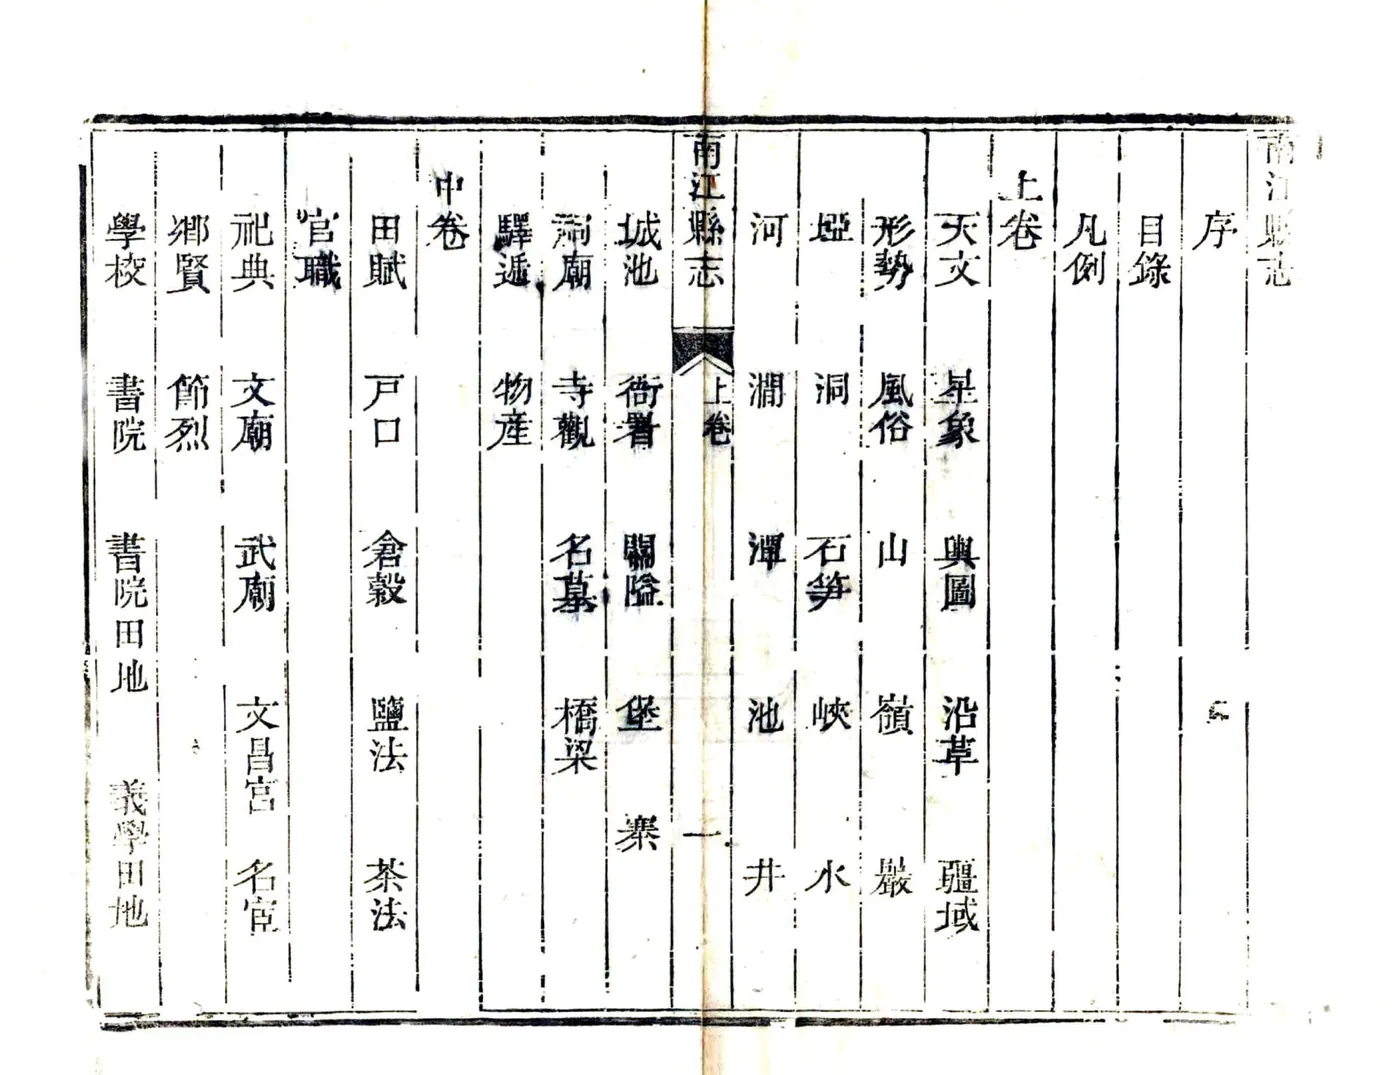 南江縣志
序
目錄
凡例
上卷
天文 星象 輿圖 沿革 疆域
形勢 風俗 山 嶺 巖
埡 洞 石笋 峽 水
河 澗 潭 池 井
南江縣志 上卷 一
城池 衙署 關隘 堡 寨
祠廟 寺觀 名墓 橋梁
驛遞 物産
中卷
田賦 戸口 倉穀 鹽法 茶法
官職
祀典 文廟 武廟 文昌宮 名宦
鄉賢 節烈
學校 書院 書院田地 義學田地